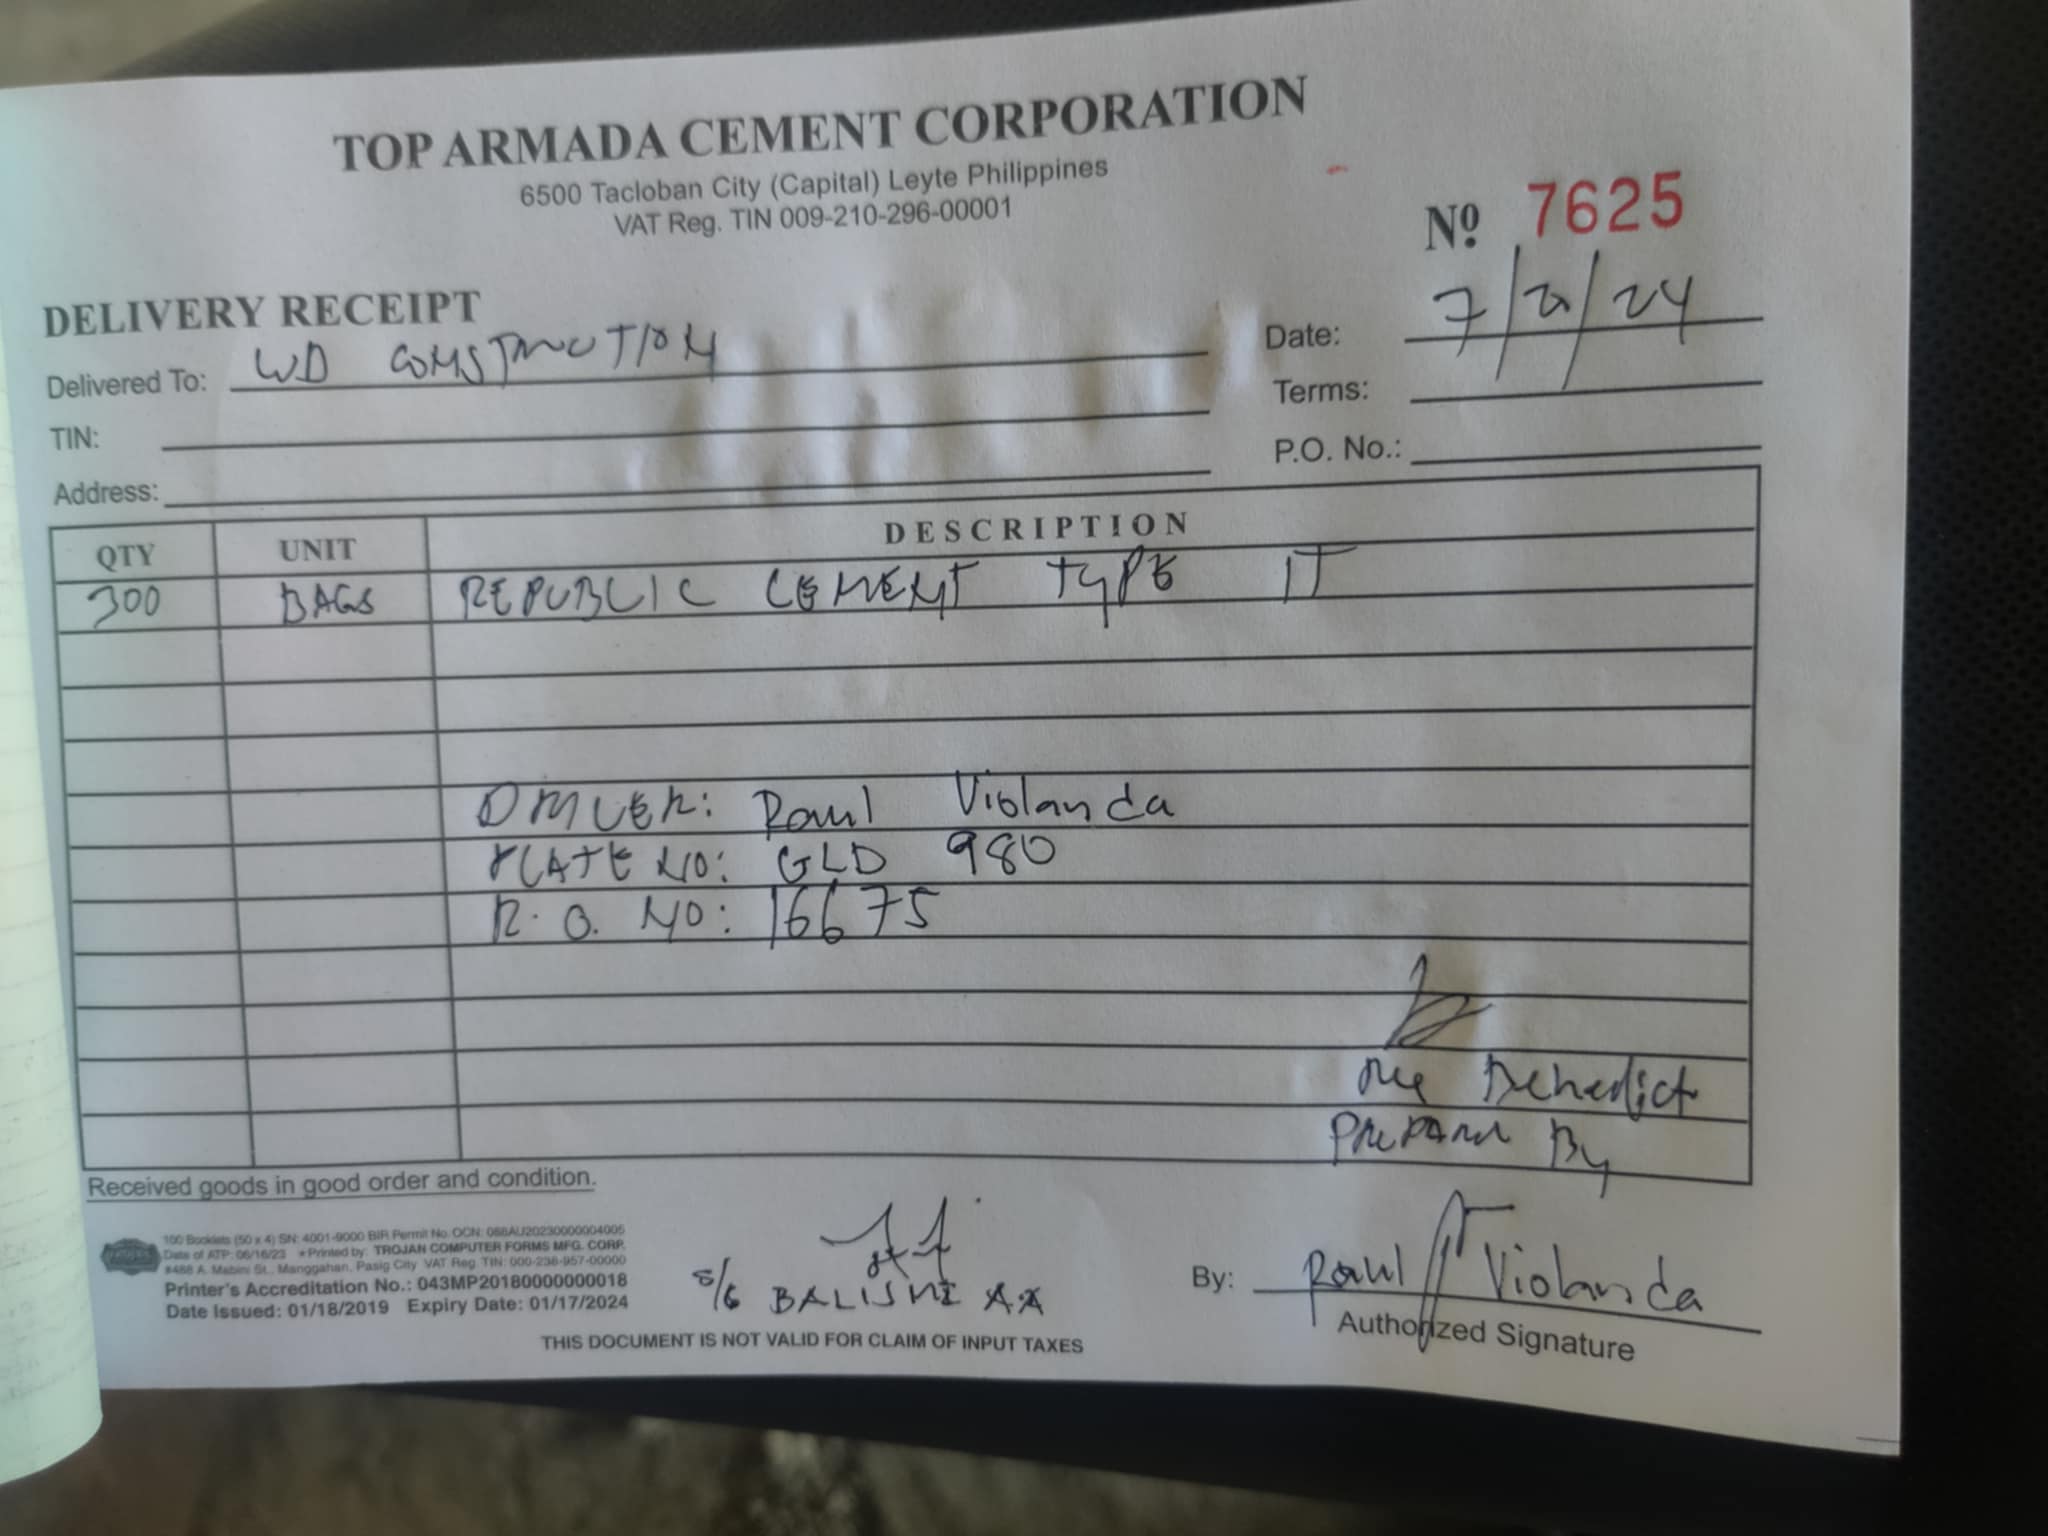 TOP ARMADA CEMENT CORPORATION
6500 Tacloban City (Capital) Leyte Philippines
VAT Reg. TIN 009-210-296-00001
Nº 7625
DELIVERY RECEIPT
Delivered To: WD CONSTRUCTION
Date: 7/21/24
TIN:
Terms:
Address:
P.O. No.:
QTY UNIT DESCRIPTION
300 BAGS REPUBLIC CEMENT TYPE 1T
DRIVER: Raul Violanda
PLATE NO: GLD 980
R.O. NO: 16675
Benedict
PREPARED By
Received goods in good order and condition.
100 Booklets (50 x 4) SN: 4001-9000 BIR Permit No. OCN: 088AU20230000004005
Date of ATP: 06/16/23 ★Printed by: TROJAN COMPUTER FORMS MFG. CORP.
#488 A. Mabini St., Manggahan, Pasig City VAT Reg. TIN: 000-238-957-00000
Printer's Accreditation No.: 043MP20180000000018
Date Issued: 01/18/2019 Expiry Date: 01/17/2024
S/G BALISNI A.A
By: Raul Violanda
Authorized Signature
THIS DOCUMENT IS NOT VALID FOR CLAIM OF INPUT TAXES